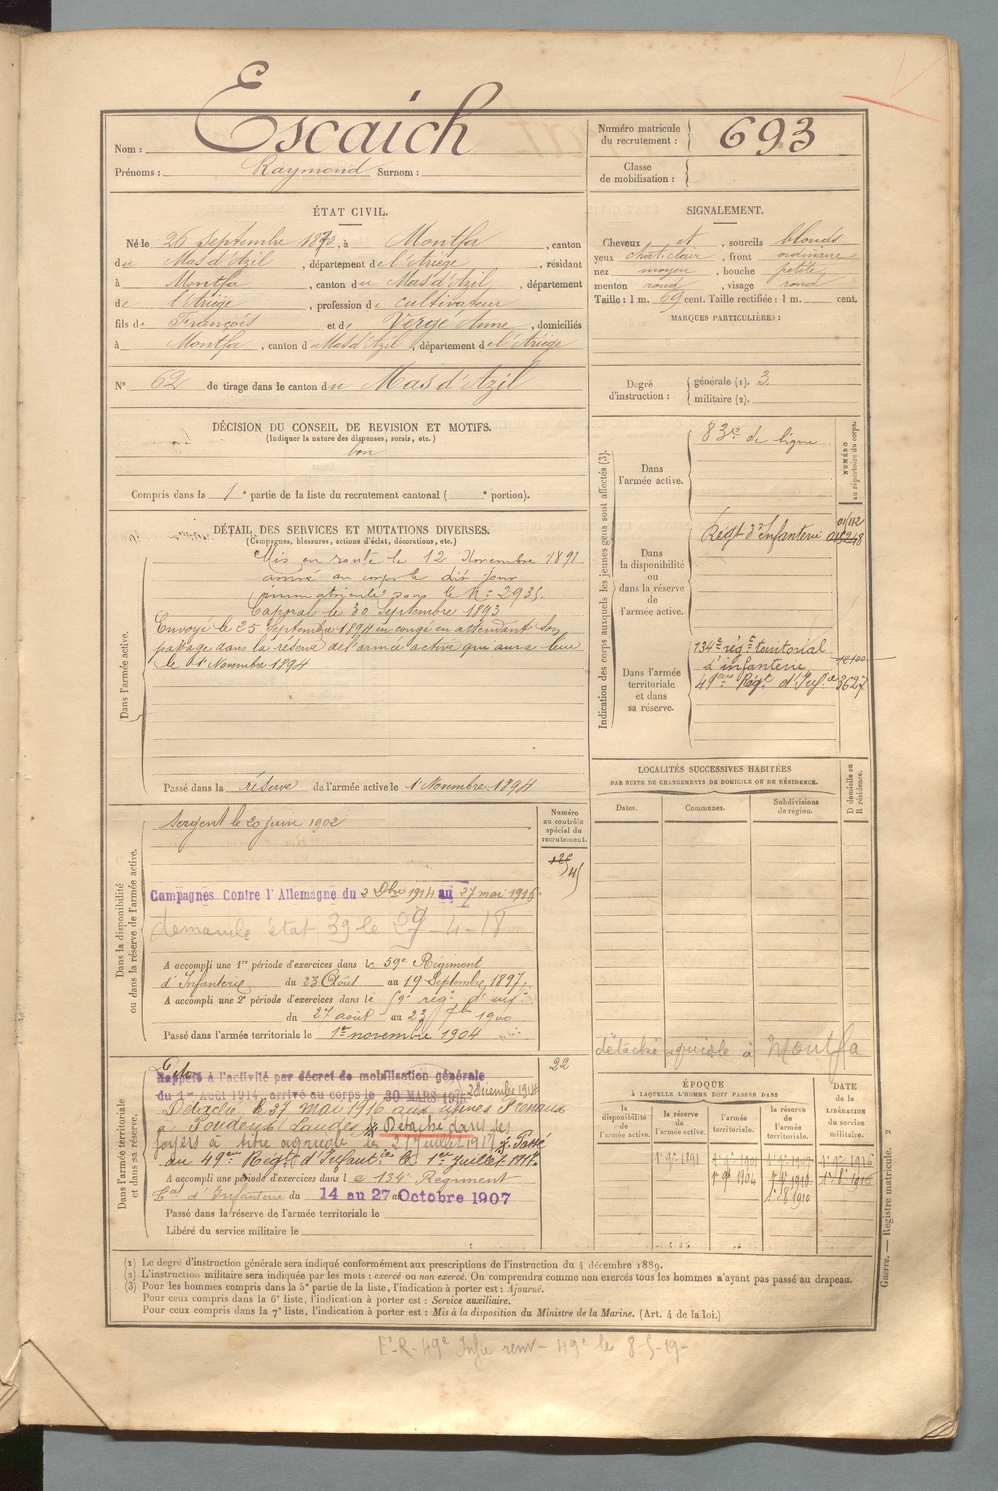 Nom : Escaich
Prénoms : Raymond Surnom :
Numéro matricule du recrutement : 693
Classe de mobilisation :
ÉTAT CIVIL.
Né le 26 septembre 1870, à Montfa, canton
du Mas d'Azil, département de l'Ariège, résidant
à Montfa, canton du Mas d'Azil, département
de l'Ariège, profession de cultivateur
fils de François et de Verge Anne, domiciliés
à Montfa, canton du Mas d'Azil, département de l'Ariège
N° 62 de tirage dans le canton du Mas d'Azil
SIGNALEMENT.
Cheveux et, sourcils blonds
yeux chat. clair, front ordinaire
nez moyen, bouche petite
menton rond, visage rond
Taille : 1 m. 69 cent. Taille rectifiée : 1 m. cent.
MARQUES PARTICULIÈRES :
Degré d'instruction : générale (1). 3.
militaire (2).
DÉCISION DU CONSEIL DE REVISION ET MOTIFS.
(Indiquer la nature des dispenses, sursis, etc.)
bon
Compris dans la 1e partie de la liste du recrutement cantonal ( e portion).
DÉTAIL DES SERVICES ET MUTATIONS DIVERSES.
(Campagnes, blessures, actions d'éclat, décorations, etc.)
Dans l'armée active.
Mis en route le 12 Novembre 1891
arrivé au corps le dit jour
immatriculé sous le N° 2935.
Caporal le 30 Septembre 1893
Envoyé le 25 Septembre 1894 en congé en attendant son
passage dans la réserve de l'armée active qui aura lieu
le 1er Novembre 1894
Passé dans la réserve de l'armée active le 1er Novembre 1894
Indication des corps auxquels les jeunes gens sont affectés (3).
NUMÉRO au répertoire du corps.
Dans l'armée active.
83e de ligne
Dans la disponibilité ou dans la réserve de l'armée active.
Régt d'Infanterie
Dans l'armée territoriale et dans sa réserve.
134e régt territorial
d'infanterie
49eme Régt d'Inf.ie 3627
LOCALITÉS SUCCESSIVES HABITÉES
PAR SUITE DE CHANGEMENTS DE DOMICILE OU DE RÉSIDENCE.
Dates. Communes. Subdivisions de région. D domicile ou R résidence.
détaché agricole à Montfa
Dans la disponibilité ou dans la réserve de l'armée active.
Sergent le 20 juin 1902
Numéro au contrôle spécial du recrutement.
Campagnes Contre l'Allemagne du 2 Dbre 1914 au 27 mai 1916
demande état 39 le 29-4-18
A accompli une 1re période d'exercices dans le 59e Régiment
d'Infanterie du 23 Août au 19 Septembre 1897
A accompli une 2e période d'exercices dans le 59e rég. d'inf.
du 27 août au 23 7bre 1900
Passé dans l'armée territoriale le 1er novembre 1904
Dans l'armée territoriale et dans sa réserve.
22
Rappelé à l'activité par décret de mobilisation générale
du 1er Août 1914, arrivé au corps le 30 MARS 1915 2 Décembre 1914
Détaché le 27 mai 1916 aux usines
à Landes Détaché dans ses
foyers à titre agricole le 2 juillet 1917. Passé
au 49eme Régt d'Infant.ie le 1er Juillet 1917.
A accompli une période d'exercices dans le 134e Régiment
d'Infanterie du 14 au 27 Octobre 1907
Passé dans la réserve de l'armée territoriale le
Libéré du service militaire le
ÉPOQUE
À LAQUELLE L'HOMME DOIT PASSER DANS
la disponibilité de l'armée active. la réserve de l'armée active. l'armée territoriale. la réserve de l'armée territoriale.
DATE de la LIBÉRATION du service militaire.
Guerre. — Registre matricule. 2
(1) Le degré d'instruction générale sera indiqué conformément aux prescriptions de l'instruction du 4 décembre 1889.
(2) L'instruction militaire sera indiquée par les mots : exercé ou non exercé. On comprendra comme non exercés tous les hommes n'ayant pas passé au drapeau.
(3) Pour les hommes compris dans la 5e partie de la liste, l'indication à porter est : Ajourné.
Pour ceux compris dans la 6e liste, l'indication à porter est : Service auxiliaire.
Pour ceux compris dans la 7e liste, l'indication à porter est : Mis à la disposition du Ministre de la Marine. (Art. 4 de la loi.)
49e le 8-5-19-